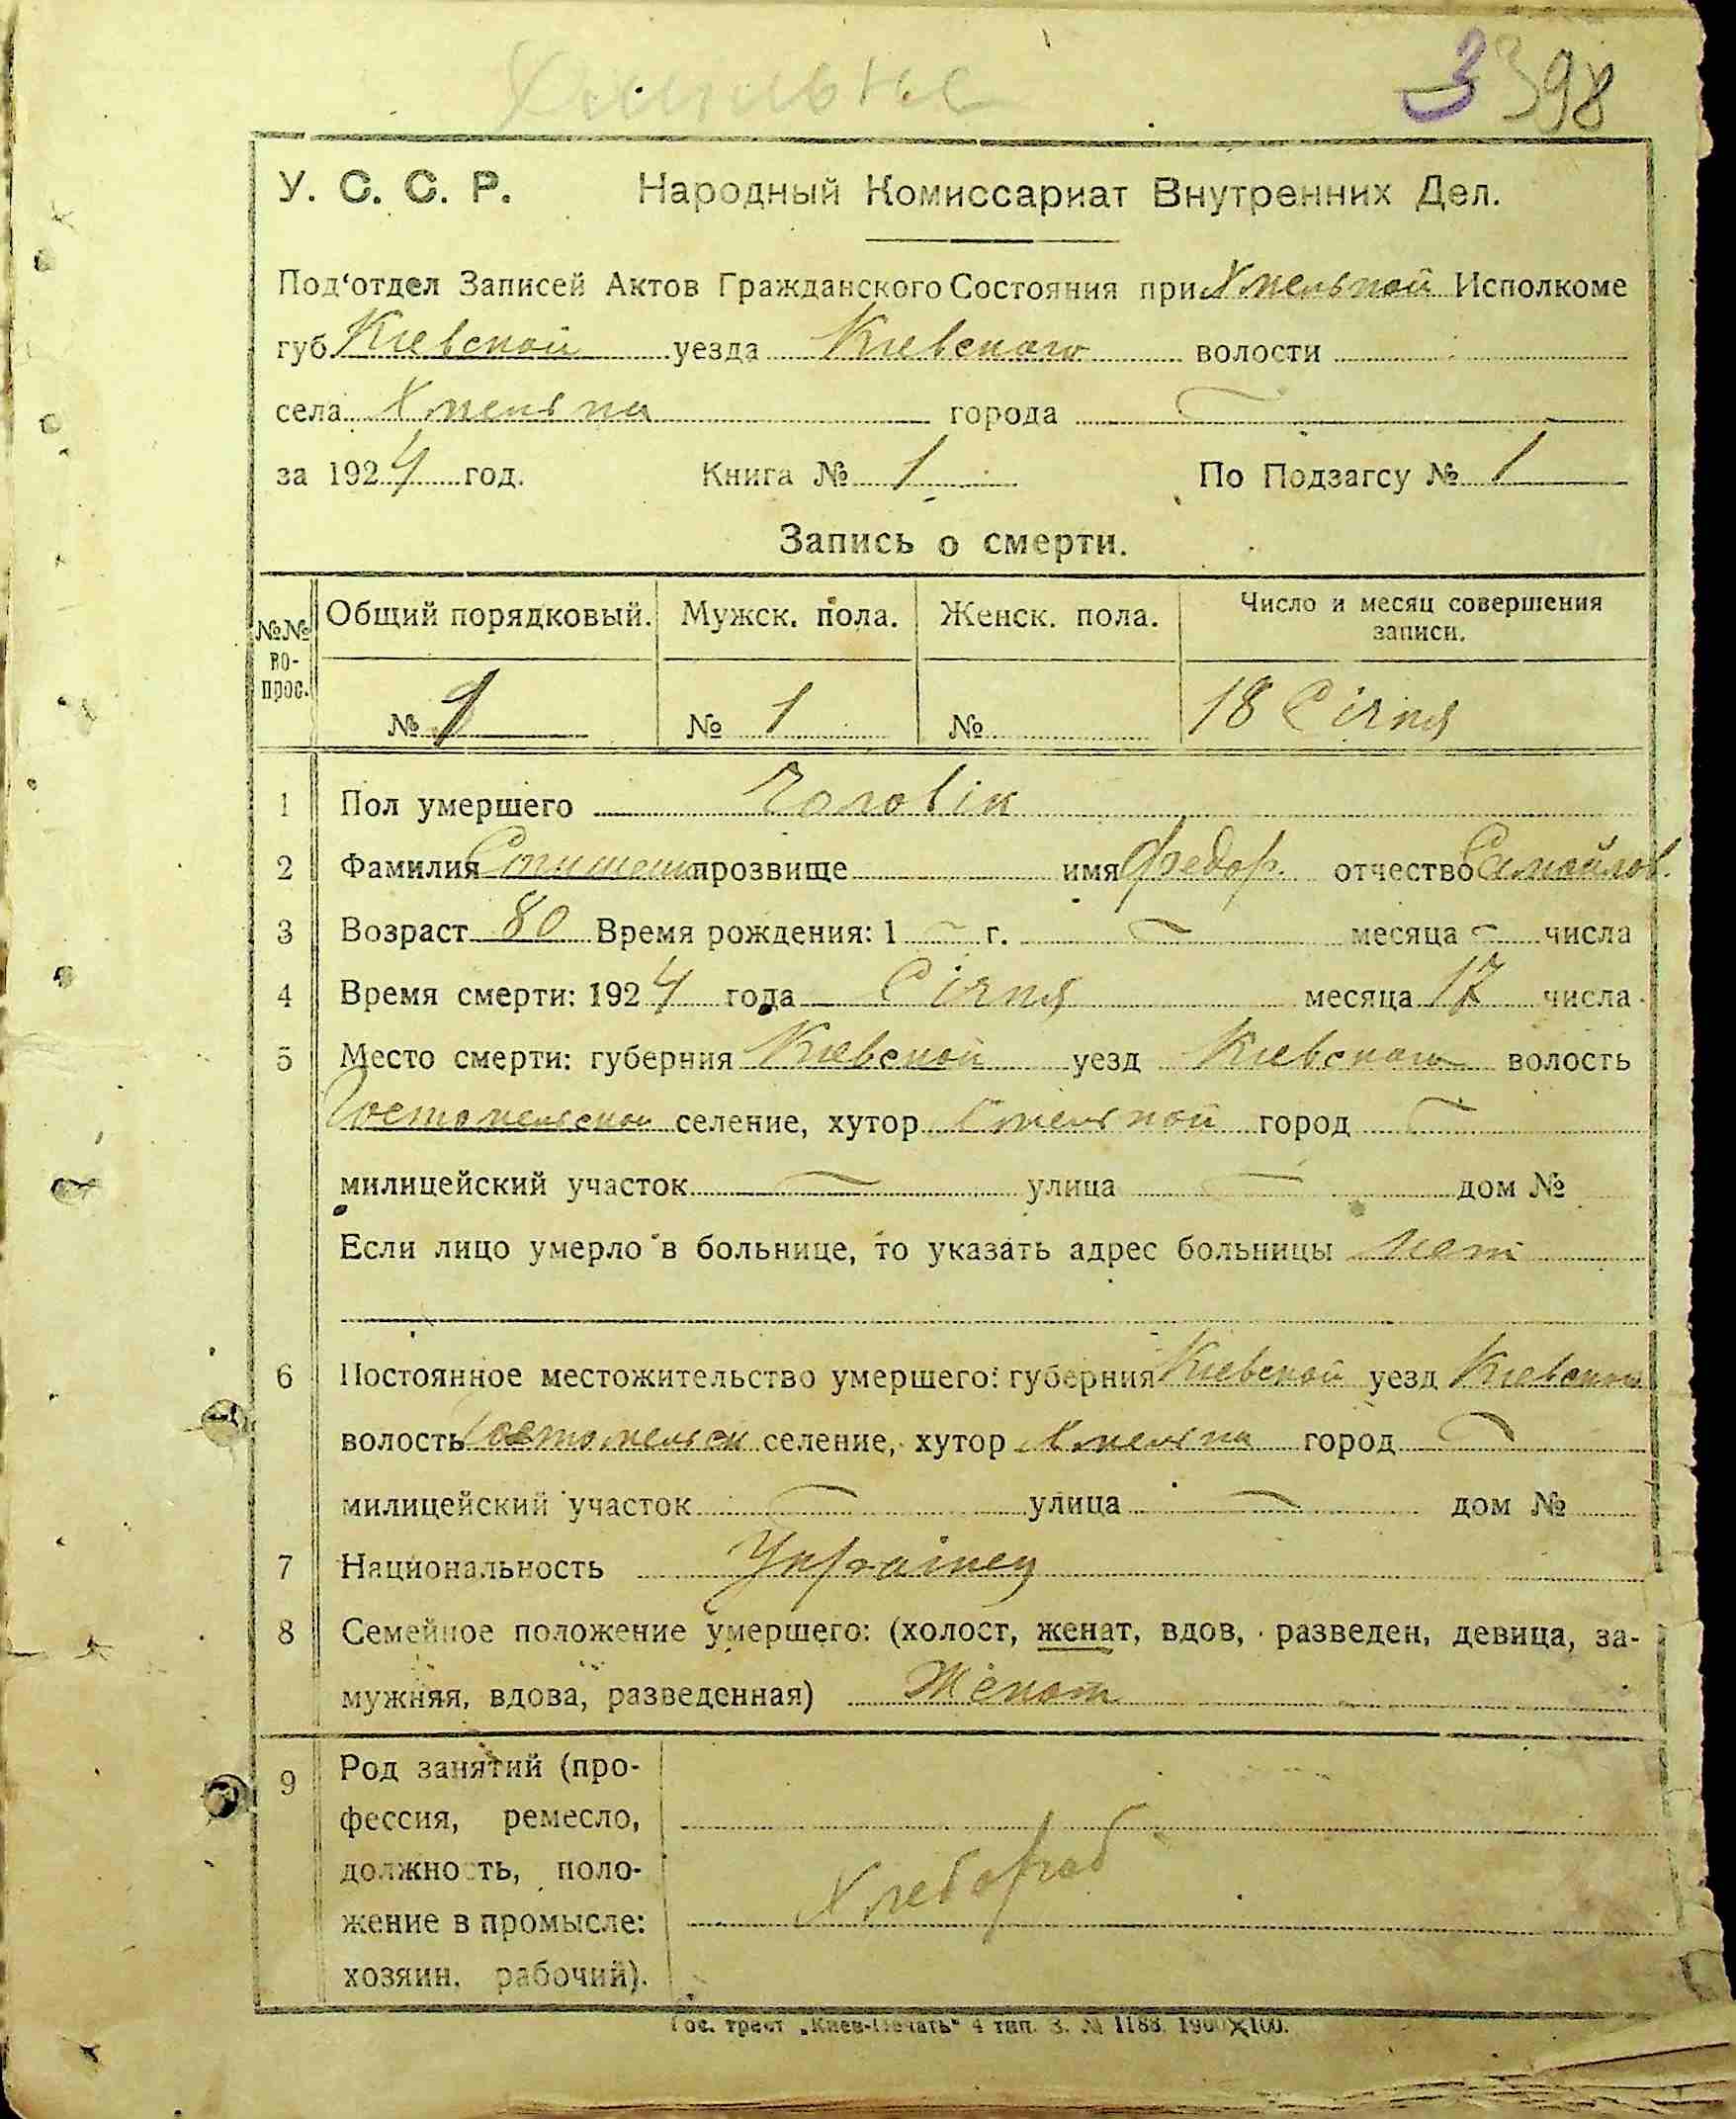 3 398
У. С. С. Р. Народный Комиссариат Внутренних Дел.
Под'отдел Записей Актов Гражданского Состояния при Хмельной Исполкоме
губ Киевской уезда Киевского волости
села Хмельна города —
за 1924 год. Книга № 1 По Подзагсу № 1
Запись о смерти.
№№ во-прос. Общий порядковый. Мужск. пола. Женск. пола. Число и месяц совершения записи.
№ 1 № 1 № 18 Січня
1 Пол умершего Чоловік
2 Фамилия прозвище имя Федор. отчество Самойлов.
3 Возраст 80 Время рождения: 1 — г. — месяца — числа
4 Время смерти: 1924 года Січня месяца 17 числа
5 Место смерти: губерния Киевской уезд Киевского волость
Гостомельской селение, хутор Хмельной город —
милицейский участок — улица — дом №
Если лицо умерло в больнице, то указать адрес больницы нет
6 Постоянное местожительство умершего: губерния Киевской уезд Киевского
волость Гостомельск селение, хутор Хмельна город —
милицейский участок — улица — дом №
7 Национальность Українец
8 Семейное положение умершего: (холост, женат, вдов, разведен, девица, за-
мужняя, вдова, разведенная) Женат
9 Род занятий (про-
фессия, ремесло,
должность, поло-
жение в промысле: Хлебороб
хозяин, рабочий).
Гос. трест „Киев-Печать" 4 тип. З. № 1188. 1900×100.